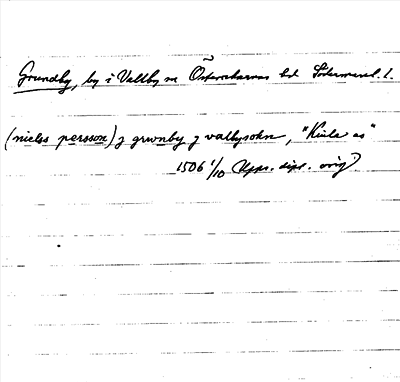 Grundby, by i Vallby sn Österrekarnas hd Södermanl. l.
(nielss persson) j grwnby j valbysokn, "Kiula as"
1506 1/10 Upps. dipl. orig.